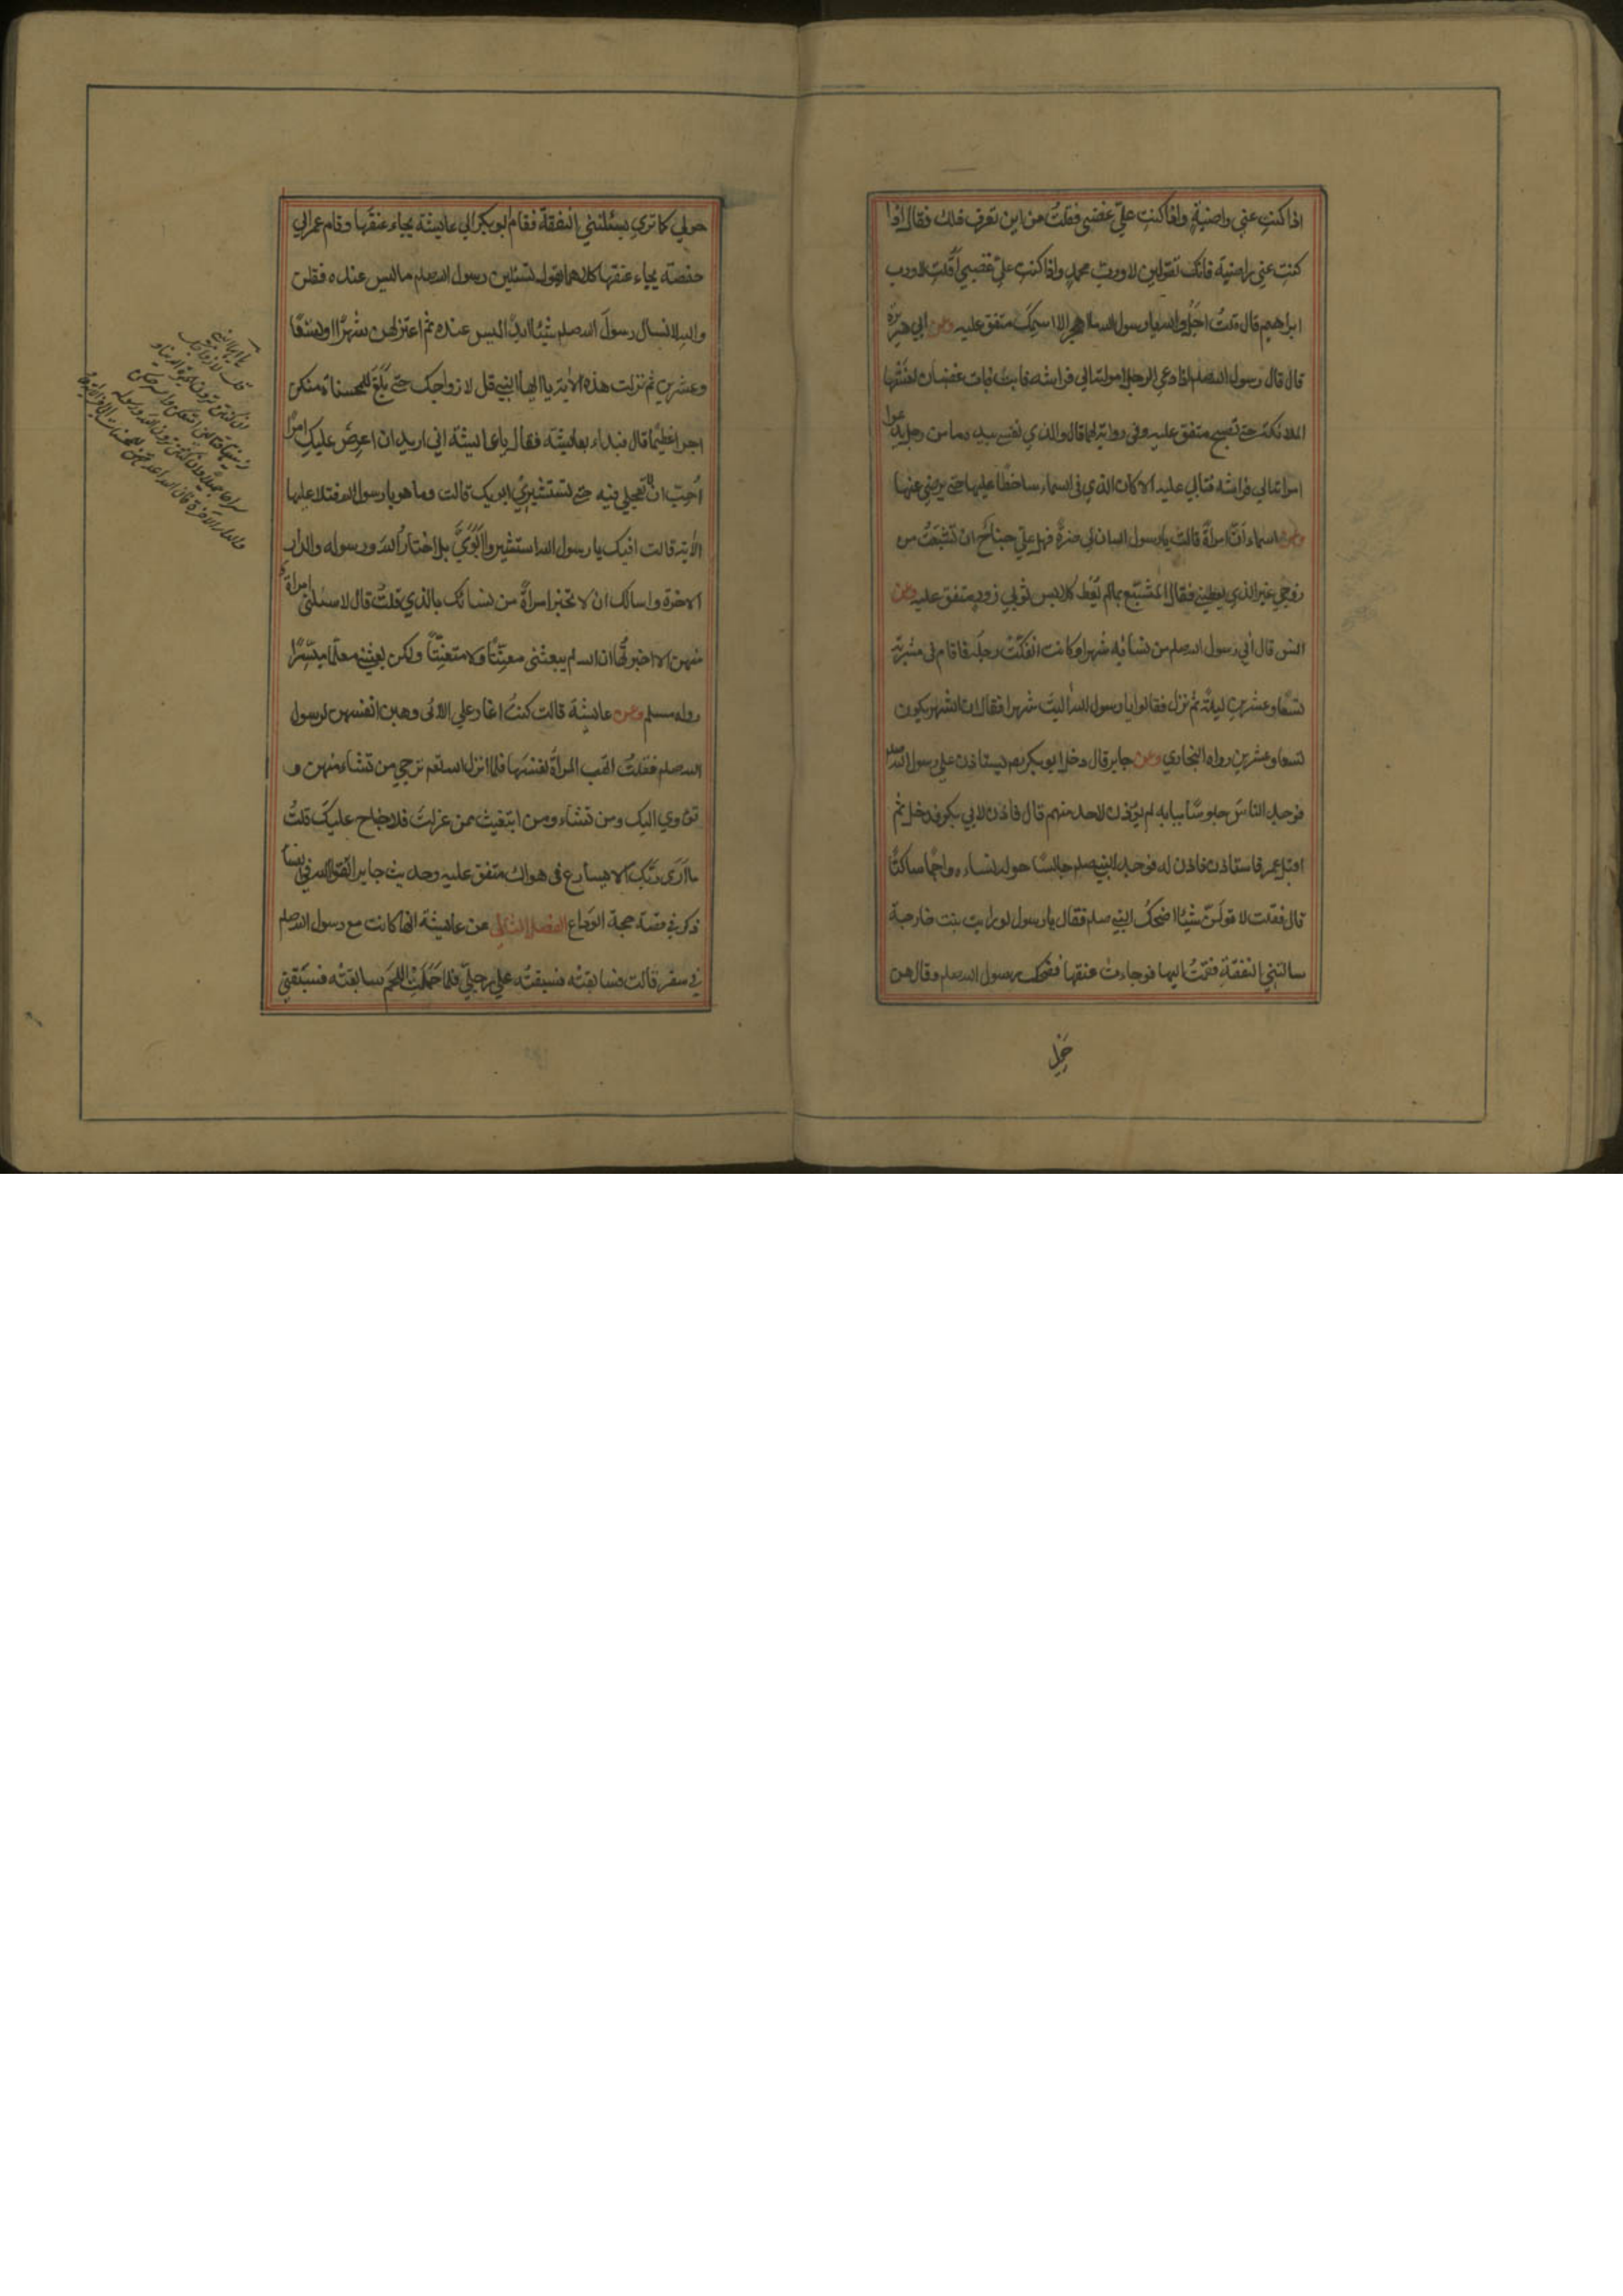 اذا كنتِ عني راضيةً واذا كنتِ عليّ غضبي فقلتُ من اين تعرف ذلك فقال اذا
كنتِ عني راضية فانك تقولين لا وربّ محمدٍ واذا كنتِ عليّ غضبي قلتِ لا ورب
ابراهيم قال قلتُ اجل والله يا رسول الله ما اهجر الا اسمك متفق عليه وعن ابي هريرة
قال قال رسول الله صلعم اذا دعي الرجل امراته الي فراشه فابت فبات غضبان لعنتها
الملائكة حتي تصبح متفق عليه وفي رواية لهما قال والذي نفسي بيده ما من رجل يدعوا
امراته الي فراشه فتابي عليه الا كان الذي في السماء ساخطًا عليها حتي يرضي عنها
وعن اسماء انّ امراةً قالت يا رسول الله ان لي ضرةً فهل عليّ جناح ان تشبعتُ من
زوجي غير الذي يعطيني فقال المتشبّع بما لم يُعطَ كلابس ثوبي زورٍ متفق عليه وعن
انس قال الي رسول الله صلعم من نسائه شهرا وكانت انفكّت رجله فاقام في مشربة
تسعًا وعشرين ليلة ثم نزل فقالوا يا رسول الله اليتَ شهرا فقال ان الشهر يكون
تسعا وعشرين رواه البخاري وعن جابر قال دخل ابو بكر رضه يستاذن علي رسول الله صلعم
فوجد الناسَ جلوسًا ببابه لم يؤذن لاحد منهم قال فاذن لابي بكر فدخل ثم
اقبل عمر فاستاذن فاذن له فوجد النبي صلعم جالسًا حوله نساءه واجمًا ساكتًا
قال فقلت لاقولنّ شيئا اضحكُ النبي صلعم فقال يا رسول لو رايت بنت خارجة
سالتني النفقةَ فقمتُ اليها فوجاءت عنقها فضحك رسول الله صلعم وقال هن
حولي
حولي كما تري يسئلنني النفقة فقام ابو بكر الي عايشة يجاء عنقها وقام عمر الي
حفصة يجاء عنقها كلاهما يقول تسئلين رسول الله صلعم ما ليس عنده فقلن
والله لا نسال رسولَ الله صلعم شيئا ابدًا ليس عنده ثم اعتزلهن شهرًا او تسعًا
وعشرين ثم نزلت هذه الآية يا ايها النبي قل لازواجك حتي بلغ للمحسنات منكن
اجرا عظيمًا قال فبداء بعايشة فقال يا عايشة اني اريد ان اعرض عليكِ امرًا
اُحِبّ ان لا تعجلي فيه حتي تستشيري ابويك قالت وما هو يا رسول الله فتلا عليها
الآية قالت افيك يا رسول الله استشير ابوَيَّ بل اختارُ اللهَ ورسوله والدار
الاخرة واسالك ان لا تخبر امراةً من نسائك بالذي قلتُ قال لا تسئلني امراة
منهن الا اخبرتُها ان الله لم يبعثني معنّتًا ولا متعنّتًا ولكن بعثني معلّما ميسّرًا
رواه مسلم وعن عايشة قالت كنتُ اغار علي اللائي وهبن انفسهن لرسول
الله صلعم فقلتُ اتهب المراة نفسها فلما انزل الله تعم ترجي من تشاء منهن و
تؤوي اليك من تشاء ومن ابتغيت ممن عزلت فلا جناح عليك قلتُ
ما اَرَي ربّكَ الا يسارع في هواك متفق عليه وحديث جابر اتقوا الله في نسا
ذكر في قصة حجة الوداع الفصل الثاني عن عايشة انها كانت مع رسول الله صلعم
في سفر قالت فسابقتُه فسبقتُه علي رجليّ فلما حَمَلتُ اللحَم سابقتُه فسبقني
يا ايها النبي
قل لازواجك
ان كنتن تردن الحيوة الدنيا و
زينتها فتعالين امتعكن واسرحكن
سراحا جميلا وان كنتن تردن الله ورسوله
والدار الآخرة فان الله اعد للمحسنات